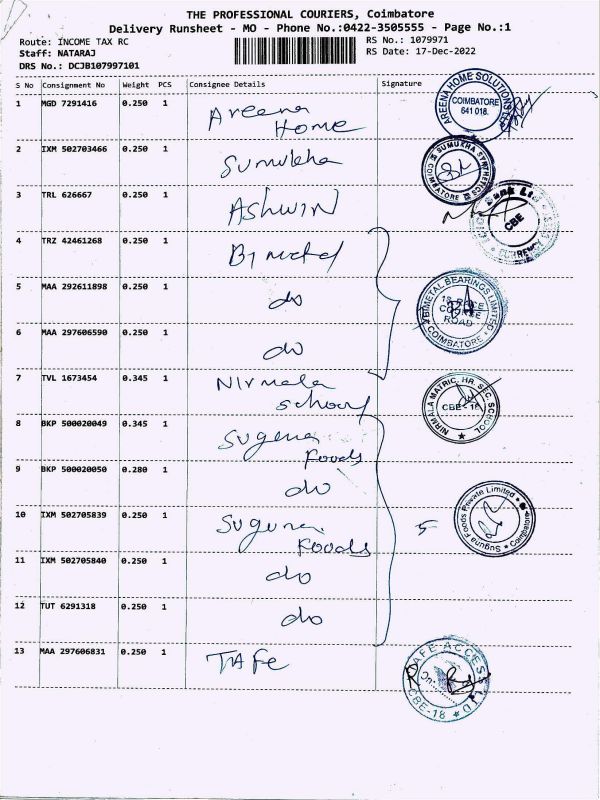 THE PROFESSIONAL COURIERS, Coimbatore
Delivery Runsheet - MO - Phone No.:0422-3505555 - Page No.:1
Route: INCOME TAX RC
RS No.: 1079971
Staff: NATARAJ
RS Date: 17-Dec-2022
DRS No.: DCJB107997101
S No Consignment No Weight PCS Consignee Details Signature
1 MGD 7291416 0.250 1 Areena
Home
AREENA HOME SOLUTIONS
COIMBATORE
641 018.
2 IXM 502703466 0.250 1 Sumukha
SUMUKHA SYNTHETICS
COIMBATORE
3 TRL 626667 0.250 1 ASHWIN
CBE
CURRENCY
4 TRZ 42461268 0.250 1 Bimetal
5 MAA 292611898 0.250 1 do
BIMETAL BEARINGS LIMITED
18, RACE
COURSE
ROAD
COIMBATORE
6 MAA 297606590 0.250 1 do
7 TVL 1673454 0.345 1 Nirmala
School
NIRMALA MATRIC. HR. SEC. SCHOOL
CBE - 18
8 BKP 500020049 0.345 1 Suguna
Foods
9 BKP 500020050 0.280 1 do
10 IXM 502705839 0.250 1 Suguna
Foods
5
Suguna Foods Private Limited
Coimbatore
11 IXM 502705840 0.250 1 do
12 TUT 6291318 0.250 1 do
13 MAA 297606831 0.250 1 TAFe
TAFE ACCESS LTD
CBE-18